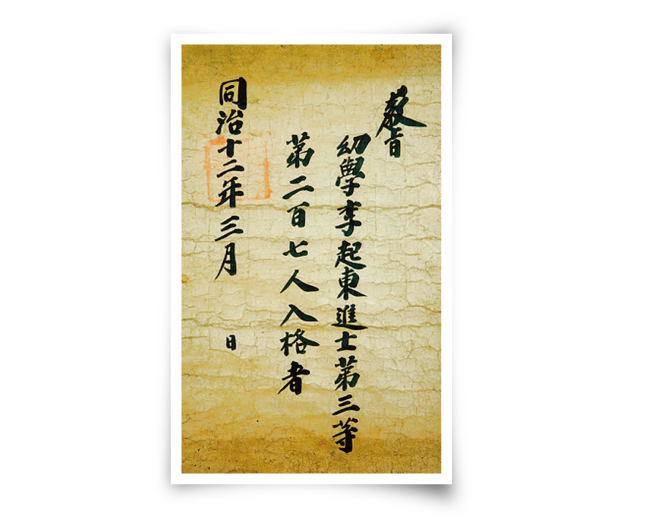 敎旨
幼學李起東進士第三等
第二百七人入格者
同治十二年三月　日